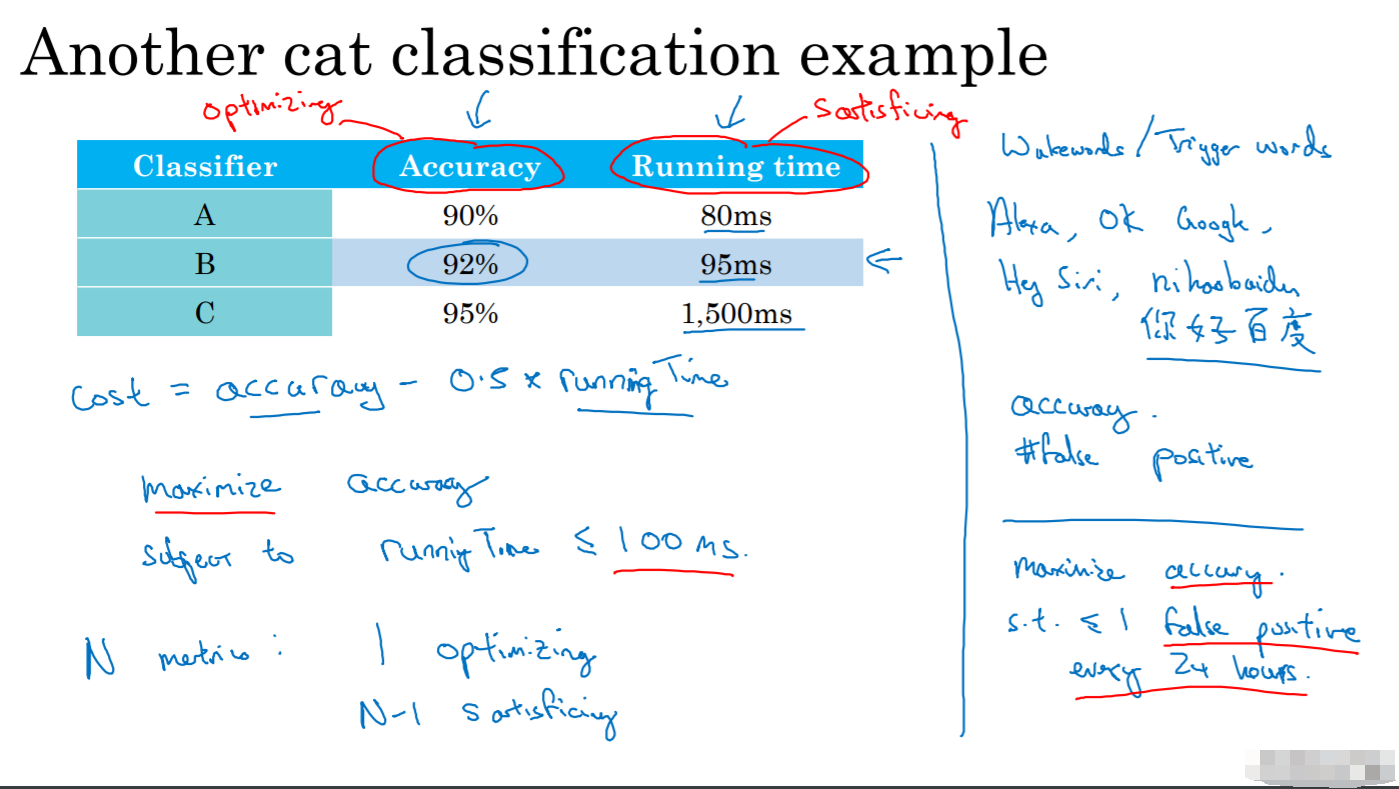 Another cat classification example
optimizing
Satisficing
Classifier Accuracy Running time
A 90% 80ms
B 92% 95ms
C 95% 1,500ms
Cost = accuracy - 0.5 x running Time
maximize accuracy
subject to running Time ≤ 100 ms.
N metrics: 1 optimizing
N-1 satisficing
Wakewords / Trigger words
Alexa, OK Google,
Hey Siri, nihaobaidu
你好百度
accuracy.
#false positive
Maximize accuracy.
s.t. ≤ 1 false positive
every 24 hours.